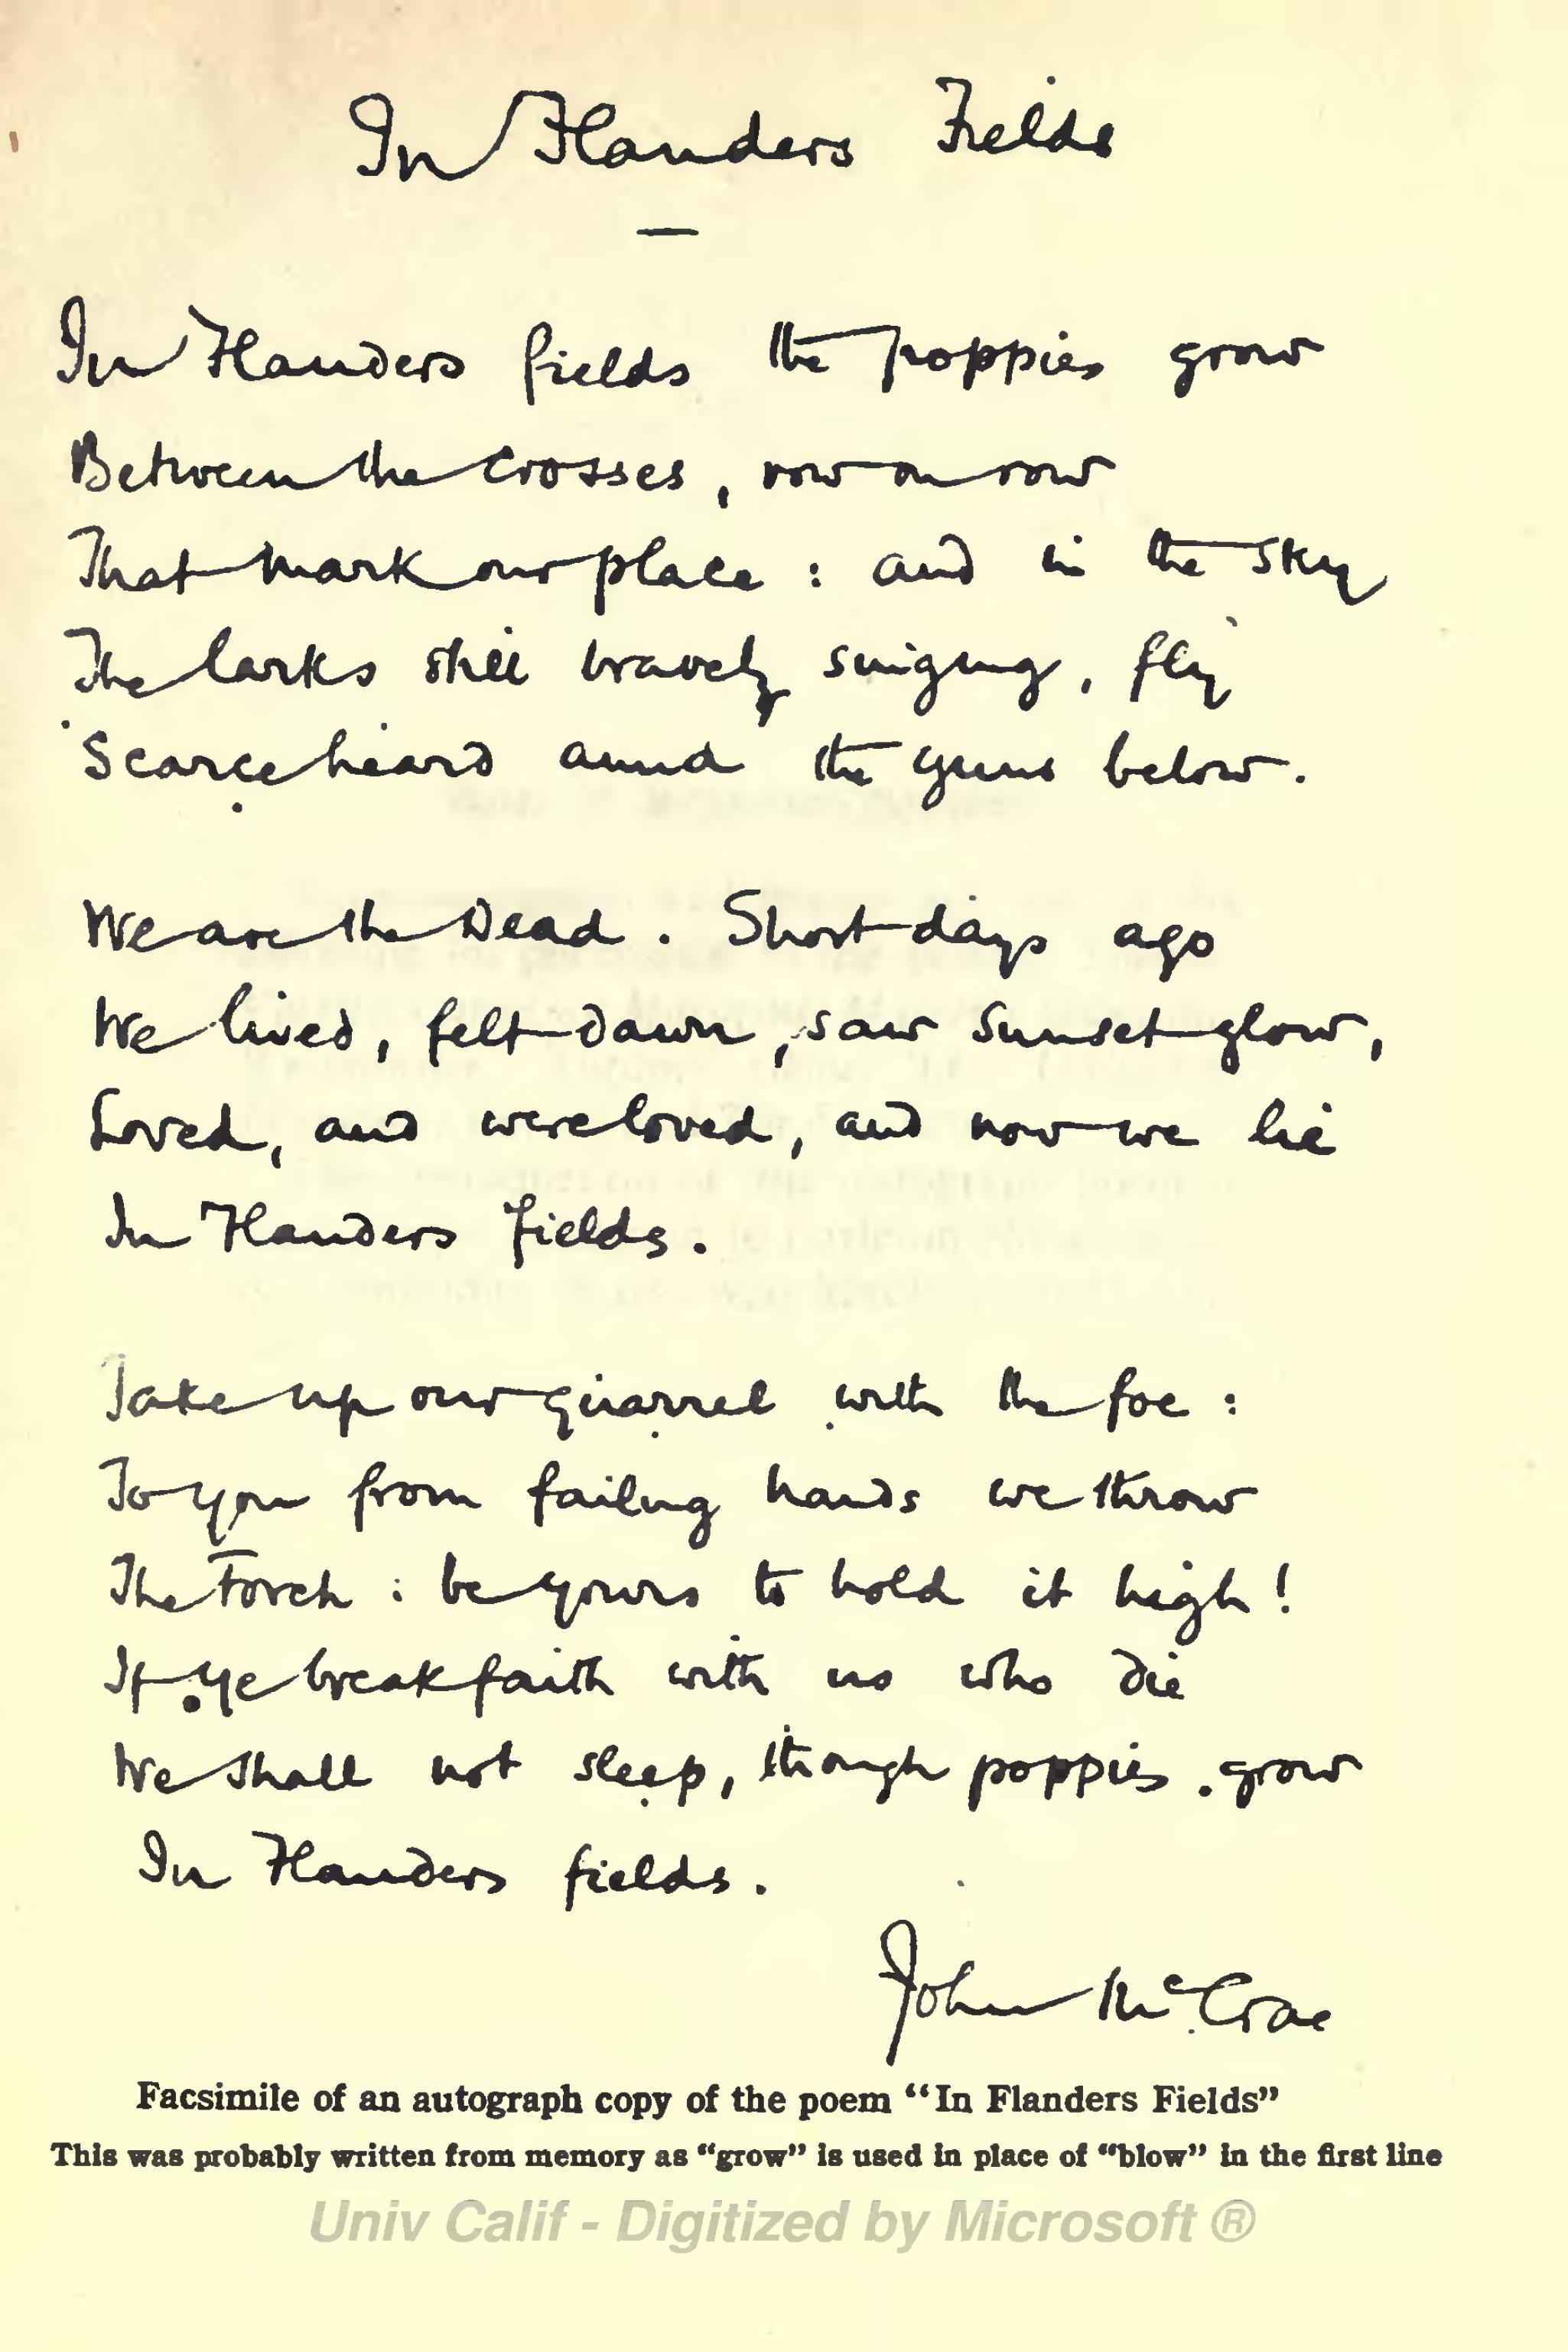 In Flanders Fields
In Flanders fields the poppies grow
Between the crosses, row on row
That mark our place : and in the sky
The larks still bravely singing, fly
Scarce heard amid the guns below.
We are the Dead. Short days ago
We lived, felt dawn, saw sunset glow,
Loved, and were loved, and now we lie
In Flanders fields.
Take up our quarrel with the foe :
To you from failing hands we throw
The Torch : be yours to hold it high!
If ye break faith with us who die
We shall not sleep, though poppies grow
In Flanders fields.
John McCrae
Facsimile of an autograph copy of the poem “In Flanders Fields”
This was probably written from memory as “grow” is used in place of “blow” in the first line
Univ Calif - Digitized by Microsoft ®